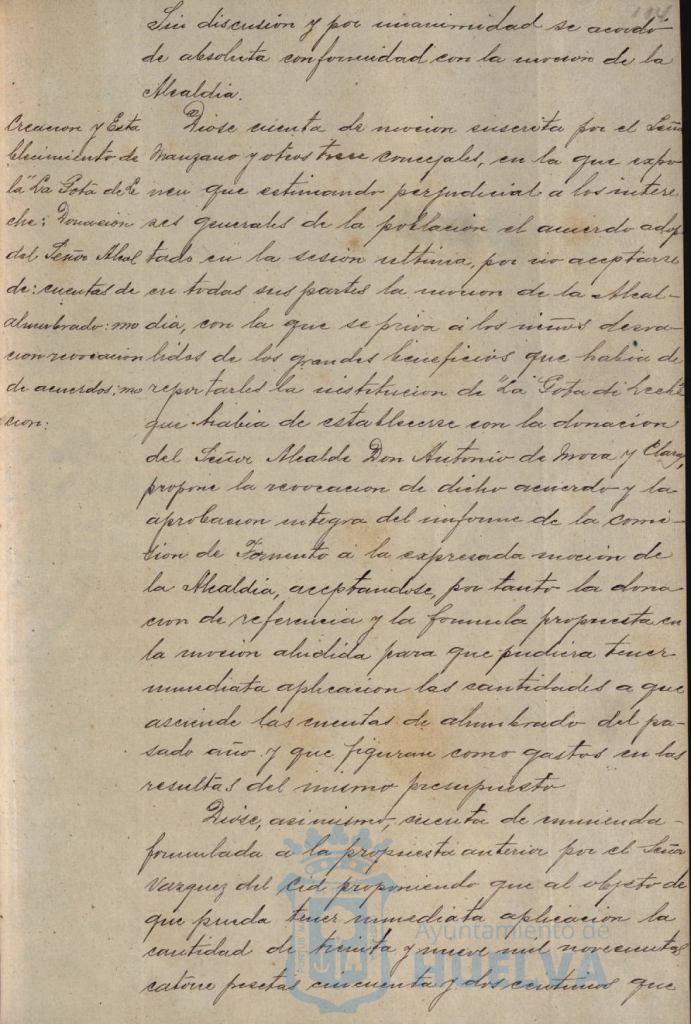 Sin discusion y por unanimidad se acordó
de absoluta conformidad con la mocion de la
Alcaldia.
Creacion y Esta
blecimiento de
la "La Gota de Le
che: Donacion
del Señor Alcal
de: cuentas de
alumbrado: mo
cion revocacion
de acuerdos: mo
cion:
Diose cuenta de mocion suscrita por el Señor
Manzano y otros tres concejales, en la que expo
nen que estimando perjudicial a los intere
ses generales de la poblacion el acuerdo adop
tado en la sesion ultima, por no aceptarse
en todas sus partes la mocion de la Alcal-
dia, con la que se priva á los niños desva-
lidos de los grandes beneficios que habia de
reportarles la institucion de "La Gota de Leche"
que habia de establecerse con la donacion
del Señor Alcalde Don Antonio de Mora y Claros,
propone la revocacion de dicho acuerdo y la
aprobacion integra del informe de la comi
sion de Fomento á la expresada mocion de
la Alcaldia, aceptandose, por tanto la dona
cion de referencia y la formula propuesta en
la mocion aludida para que pudiera tener
inmediata aplicacion las cantidades a que
asciende las cuentas de alumbrado del pa-
sado año y que figuran como gastos en las
resultas del mismo presupuesto
Diose, asi mismo, cuenta de enmienda
formulada a la propuesta anterior por el Señor
Vazquez del Cid proponiendo que al objeto de
que pueda tener inmediata aplicacion la
cantidad de treinta y nueve mil novecientas
catorce pesetas cincuenta y dos centimos que
Ayuntamiento de
HUELVA